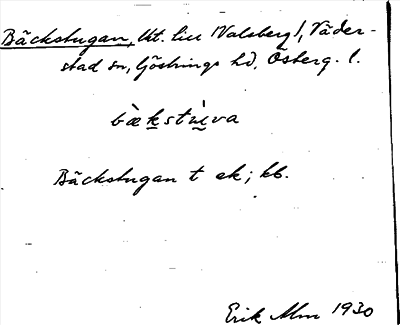 Bäckstugan, lht. till Valsberg/, Väder-
stad sn, Göstrings hd, Österg. l.
bæ̀kstùva
Bäckstugan t ek; kb.
Erik Alm 1930